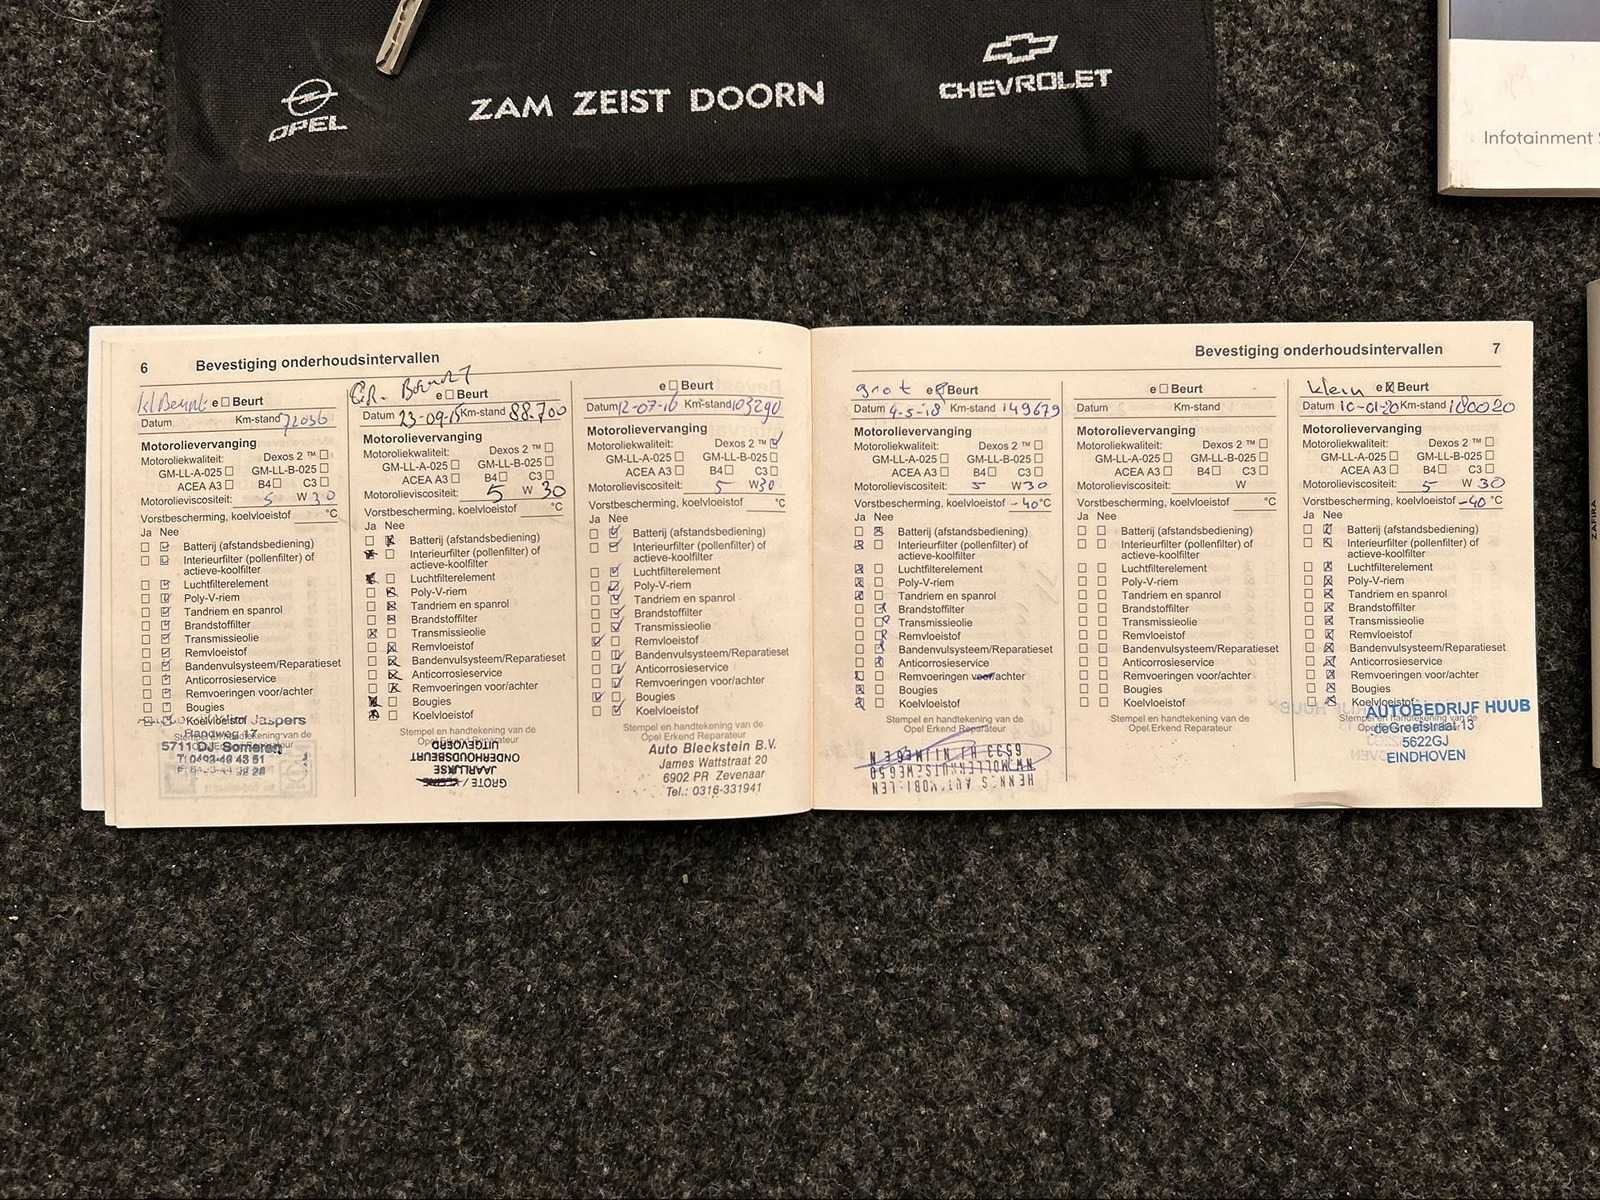 OPEL
ZAM ZEIST DOORN
CHEVROLET
Infotainment
ZAFIRA
6 Bevestiging onderhoudsintervallen
kl Beurt e Beurt
Datum Km-stand 72036
Motorolievervanging
Motoroliekwaliteit: Dexos 2 ™
GM-LL-A-025 GM-LL-B-025
ACEA A3 B4 C3
Motorolieviscositeit: 5 W 30
Vorstbescherming, koelvloeistof °C
Ja Nee
Batterij (afstandsbediening)
Interieurfilter (pollenfilter) of
actieve-koolfilter
Luchtfilterelement
Poly-V-riem
Tandriem en spanrol
Brandstoffilter
Transmissieolie
Remvloeistof
Bandenvulsysteem/Reparatieset
Anticorrosieservice
Remvoeringen voor/achter
Bougies
Koelvloeistof
Jaspers
Stempel en handtekening van de
Handweg 17
5711 DJ Someren
GR. Beurt
e Beurt
Datum 23-09-15 Km-stand 88.700
Motorolievervanging
Motoroliekwaliteit: Dexos 2 ™
GM-LL-A-025 GM-LL-B-025
ACEA A3 B4 C3
Motorolieviscositeit: 5 W 30
Vorstbescherming, koelvloeistof °C
Ja Nee
Batterij (afstandsbediening)
Interieurfilter (pollenfilter) of
actieve-koolfilter
Luchtfilterelement
Poly-V-riem
Tandriem en spanrol
Brandstoffilter
Transmissieolie
Remvloeistof
Bandenvulsysteem/Reparatieset
Anticorrosieservice
Remvoeringen voor/achter
Bougies
Koelvloeistof
Stempel en handtekening van de
Opel Erkend Reparateur
GROTE / KLEINE
JAARLIJKSE
ONDERHOUDSBEURT
UITGEVOERD
e Beurt
Datum 12-07-16 Km-stand 103290
Motorolievervanging
Motoroliekwaliteit: Dexos 2 ™
GM-LL-A-025 GM-LL-B-025
ACEA A3 B4 C3
Motorolieviscositeit: 5 W 30
Vorstbescherming, koelvloeistof °C
Ja Nee
Batterij (afstandsbediening)
Interieurfilter (pollenfilter) of
actieve-koolfilter
Luchtfilterelement
Poly-V-riem
Tandriem en spanrol
Brandstoffilter
Transmissieolie
Remvloeistof
Bandenvulsysteem/Reparatieset
Anticorrosieservice
Remvoeringen voor/achter
Bougies
Koelvloeistof
Stempel en handtekening van de
Opel Erkend Reparateur
Auto Bleckstein B.V.
James Wattstraat 20
6902 PR Zevenaar
Tel.: 0316-331941
Bevestiging onderhoudsintervallen 7
grot e Beurt
Datum 4-5-'18 Km-stand 149679
Motorolievervanging
Motoroliekwaliteit: Dexos 2 ™
GM-LL-A-025 GM-LL-B-025
ACEA A3 B4 C3
Motorolieviscositeit: 5 W 30
Vorstbescherming, koelvloeistof -40 °C
Ja Nee
Batterij (afstandsbediening)
Interieurfilter (pollenfilter) of
actieve-koolfilter
Luchtfilterelement
Poly-V-riem
Tandriem en spanrol
Brandstoffilter
Transmissieolie
Remvloeistof
Bandenvulsysteem/Reparatieset
Anticorrosieservice
Remvoeringen voor/achter
Bougies
Koelvloeistof
Stempel en handtekening van de
Opel Erkend Reparateur
6533 HJ NIJMEGEN
e Beurt
Datum Km-stand
Motorolievervanging
Motoroliekwaliteit: Dexos 2 ™
GM-LL-A-025 GM-LL-B-025
ACEA A3 B4 C3
Motorolieviscositeit: W
Vorstbescherming, koelvloeistof °C
Ja Nee
Batterij (afstandsbediening)
Interieurfilter (pollenfilter) of
actieve-koolfilter
Luchtfilterelement
Poly-V-riem
Tandriem en spanrol
Brandstoffilter
Transmissieolie
Remvloeistof
Bandenvulsysteem/Reparatieset
Anticorrosieservice
Remvoeringen voor/achter
Bougies
Koelvloeistof
Stempel en handtekening van de
Opel Erkend Reparateur
klein e Beurt
Datum 10-01-20 Km-stand 180020
Motorolievervanging
Motoroliekwaliteit: Dexos 2 ™
GM-LL-A-025 GM-LL-B-025
ACEA A3 B4 C3
Motorolieviscositeit: 5 W 30
Vorstbescherming, koelvloeistof -40 °C
Ja Nee
Batterij (afstandsbediening)
Interieurfilter (pollenfilter) of
actieve-koolfilter
Luchtfilterelement
Poly-V-riem
Tandriem en spanrol
Brandstoffilter
Transmissieolie
Remvloeistof
Bandenvulsysteem/Reparatieset
Anticorrosieservice
Remvoeringen voor/achter
Bougies
Koelvloeistof
AUTOBEDRIJF HUUB
Stempel en handtekening van de
de Greefstraat 13
5622GJ
EINDHOVEN